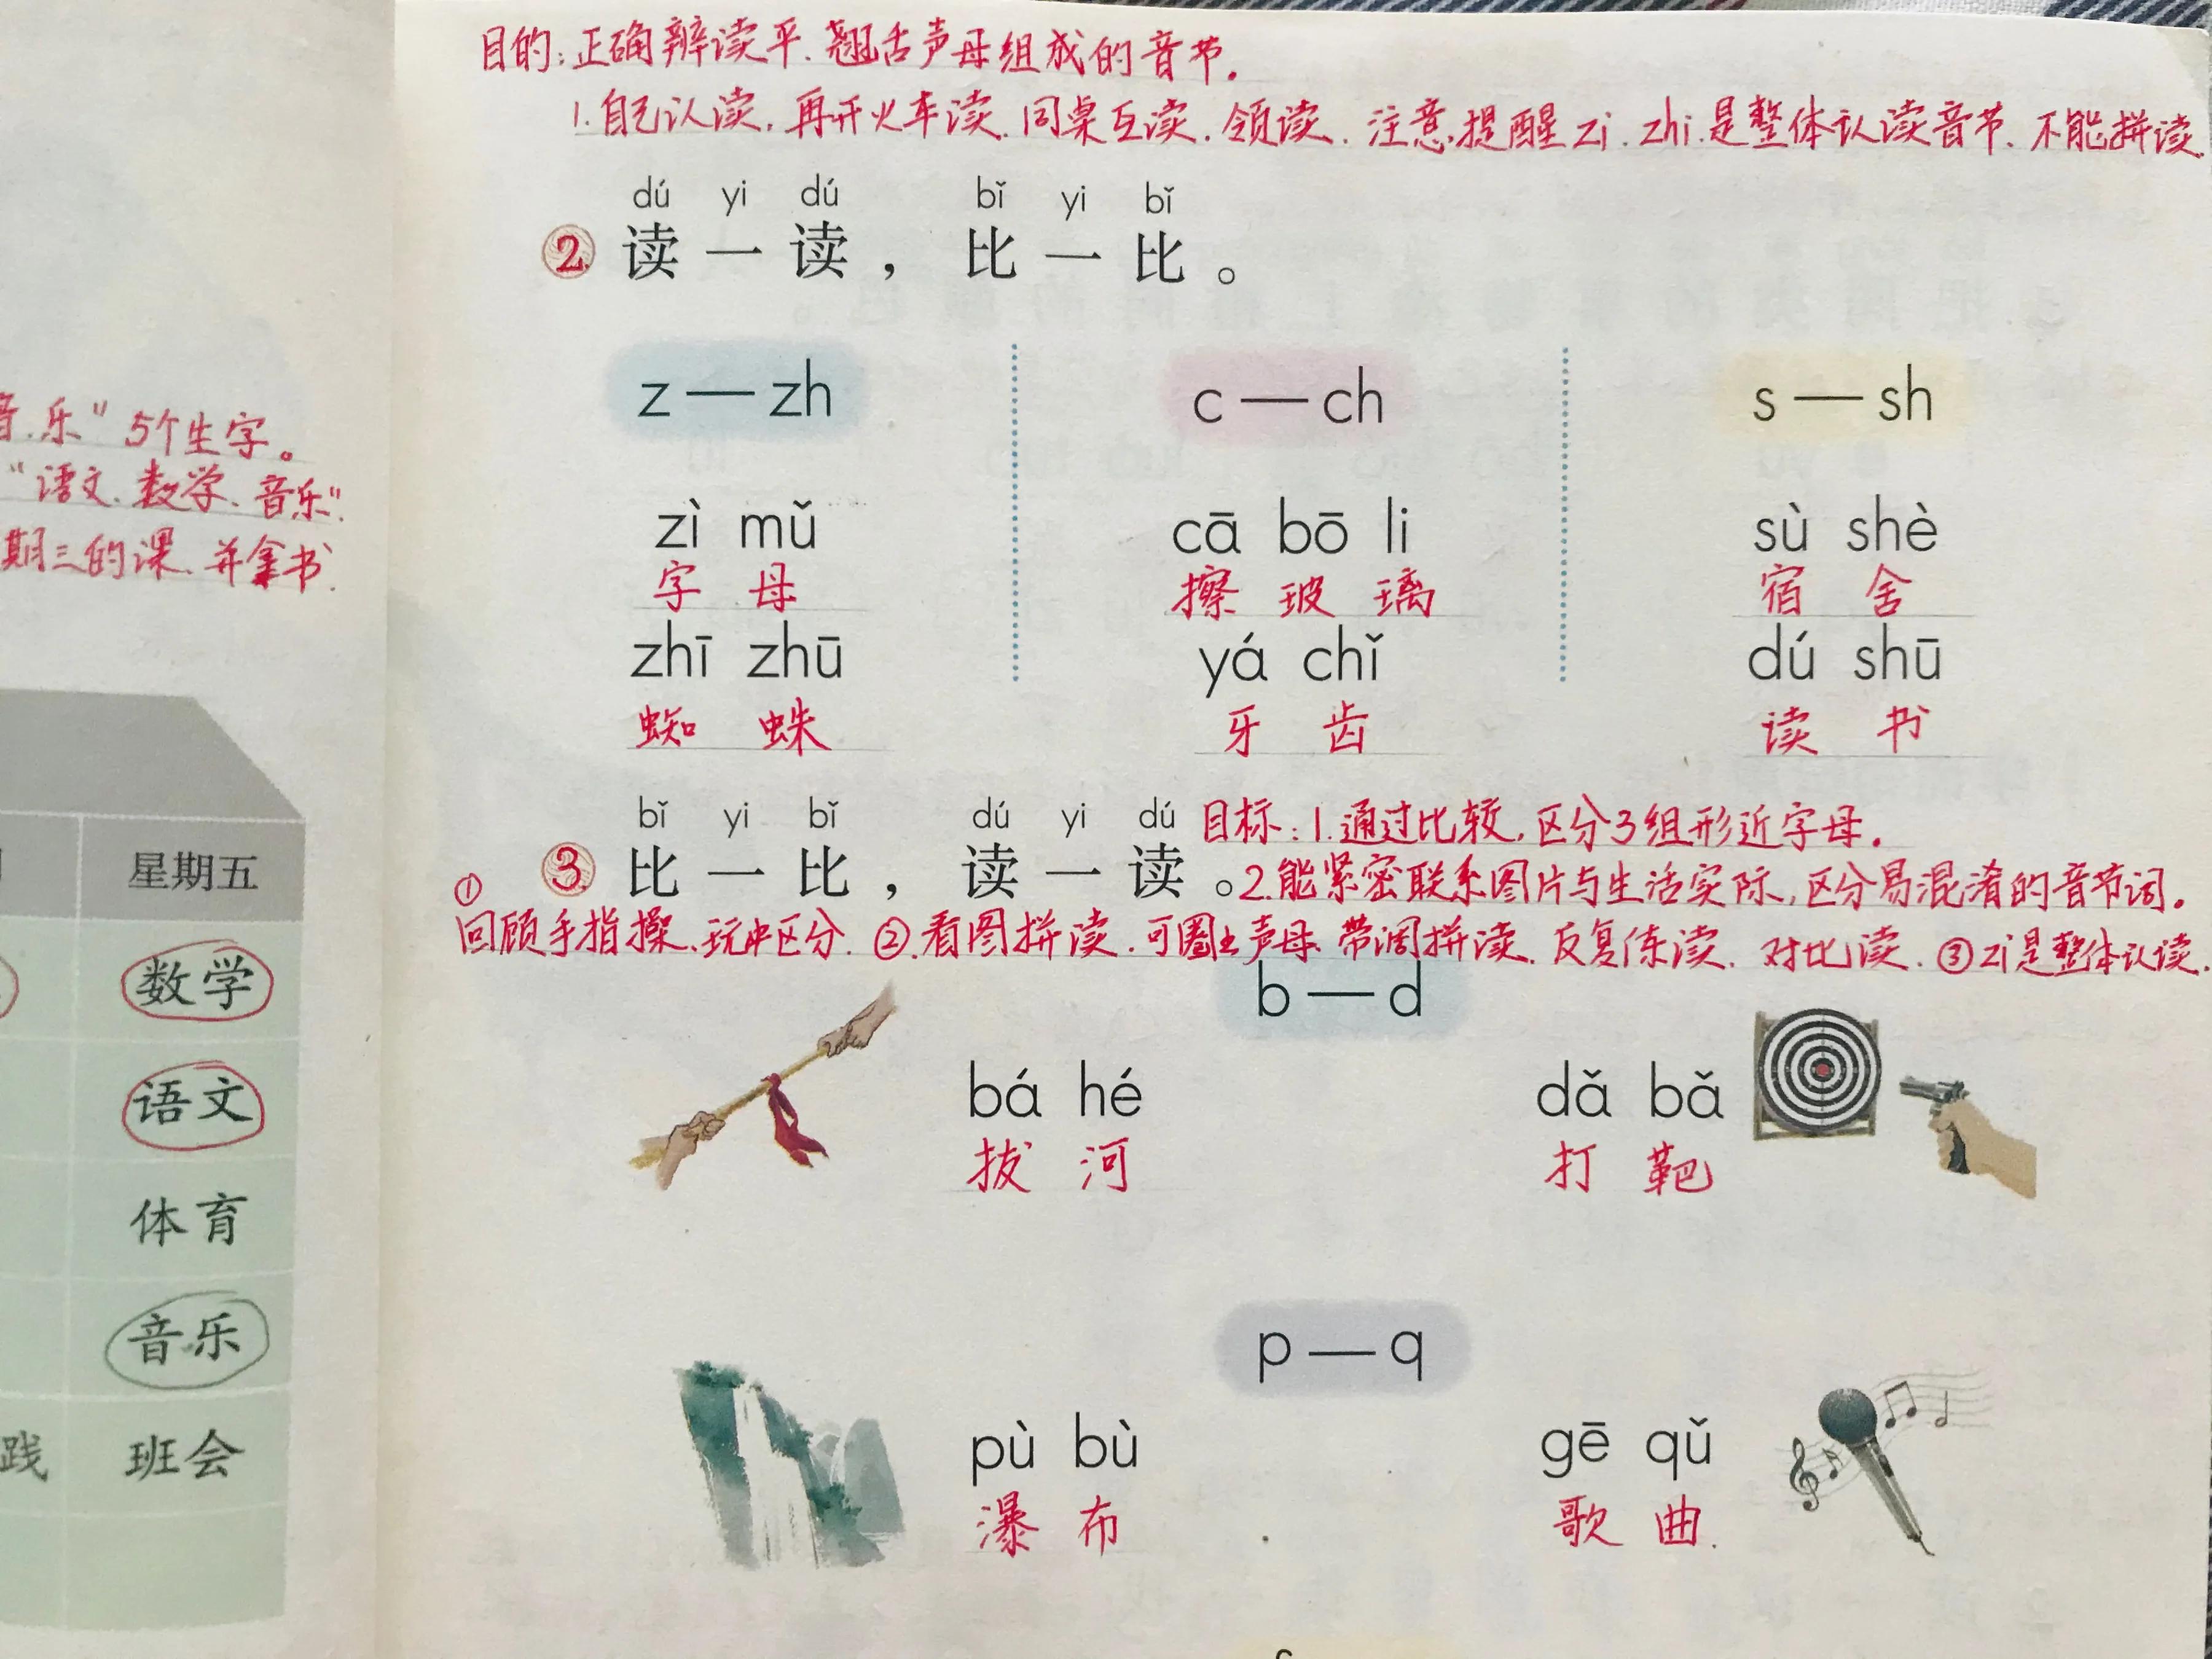 音.乐"5个生字。
"语文.数学.音乐".
期三的课.并拿书.
星期五
数学
语文
体育
音乐
践 班会
目的:正确辨读平.翘舌声母组成的音节。
1.自己认读,再开火车读.同桌互读.领读.注意,提醒zi.zhi.是整体认读音节.不能拼读.
dú yi dú bǐ yi bǐ
2 读一读,比一比。
z—zh c—ch s—sh
zì mǔ cā bō li sù shè
字母 擦玻璃 宿舍
zhī zhū yá chǐ dú shū
蜘蛛 牙齿 读书
bǐ yi bǐ dú yi dú 目标:1.通过比较,区分3组形近字母.
3 比一比,读一读。2.能紧密联系图片与生活实际,区分易混淆的音节词。
①回顾手指操.玩中区分.②.看图拼读.可圈出声母.带调拼读.反复练读.对比读.③zi是整体认读.
b—d
bá hé dǎ bǎ
拔河 打靶
p—q
pù bù gē qǔ
瀑布 歌曲.